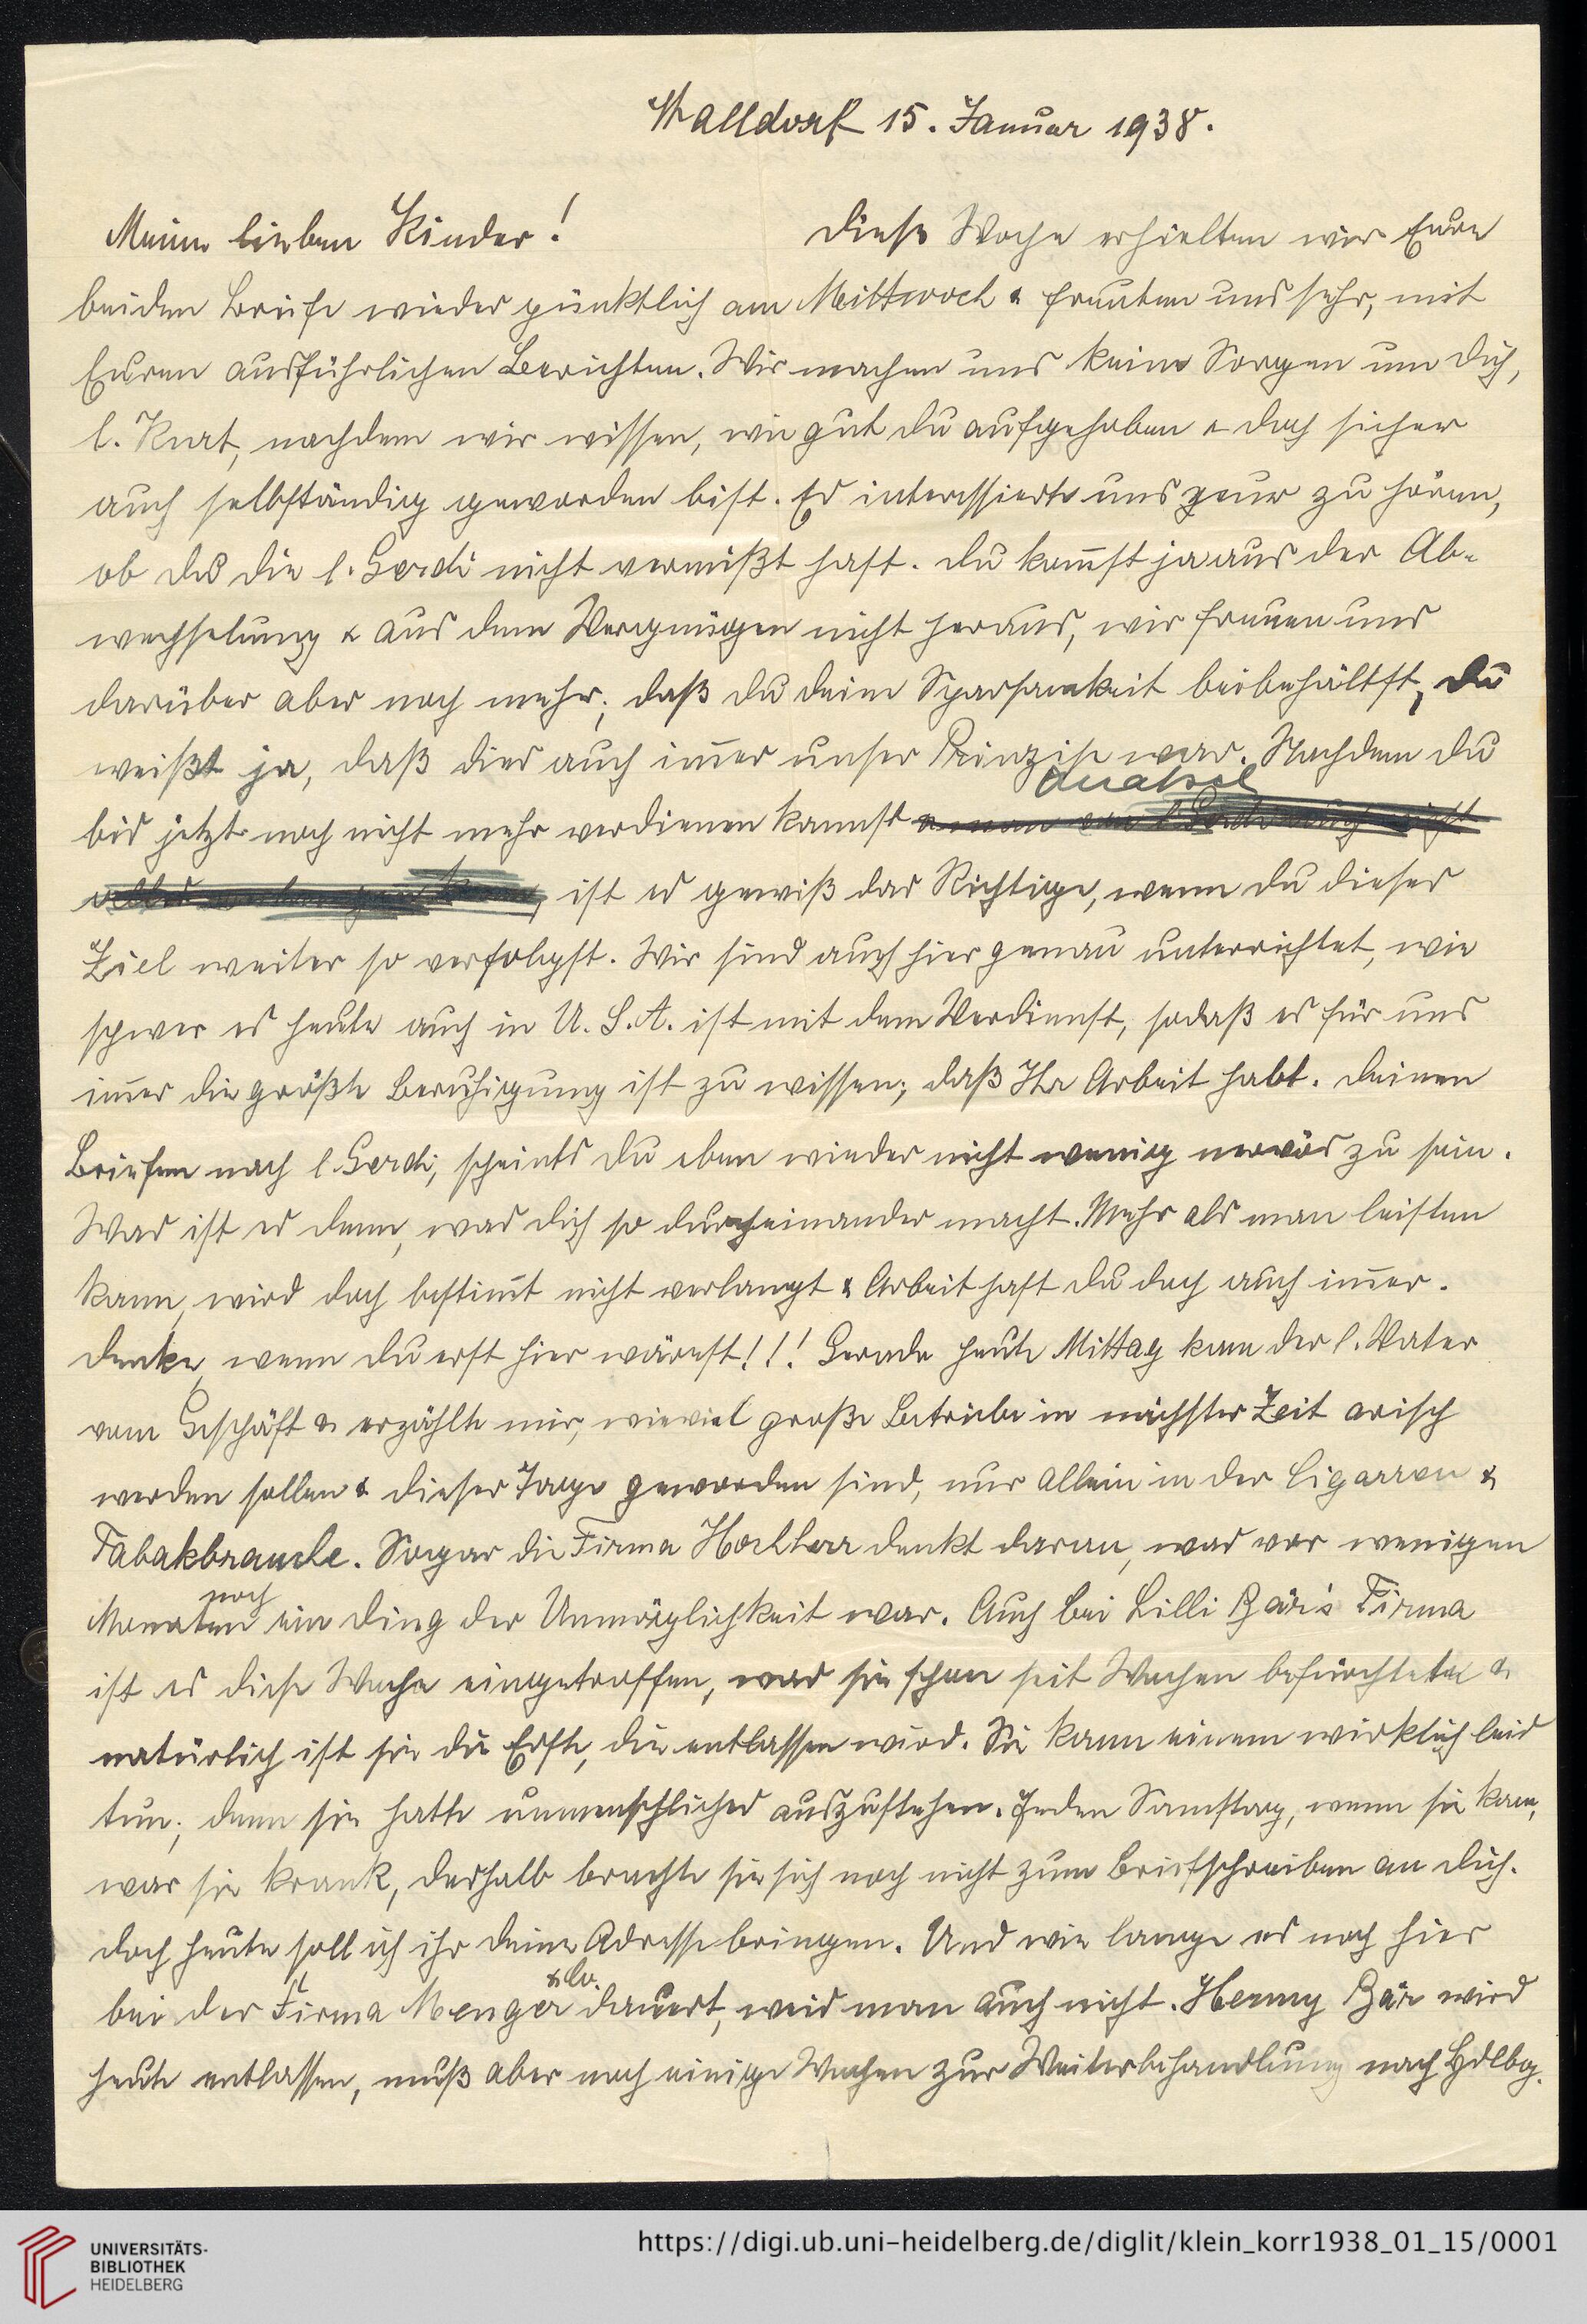 Walldorf 15. Januar 1938.
Meine lieben Kinder! Diese Woche erhielten wir Eure
beiden Briefe wieder pünktlich am Mittwoch & freuten uns sehr, mit
Euren ausführlichen Berichten. Wir machen uns keine Sorgen um Dich,
l. Kurt, nachdem wir wissen, wie gut Du aufgehoben & doch sicher
auch selbständig geworden bist. Es interessierte uns zu hören,
ob Du die l. Gerdi nicht vermißt hast. Du kom̅st ja aus der Ab-
wechselung & aus dem Vergnügen nicht heraus, wir freuen uns
darüber aber noch mehr, daß Du Deine Sparsamkeit beibehältst, Du
weißt ja, daß dies auch im̅er unser Prinzip war. Nachdem Du
Quatsch
bis jetzt noch nicht mehr verdienen kannst & man von l. Gerdi auch nicht
alles verlangen kann, ist es gewiß das Richtige, wenn Du dieses
Ziel weiter so verfolgst. Wir sind auch hier genau unterrichtet, wie
schwer es heute auch in U.S.A. ist mit dem Verdienst, sodaß es für uns
im̅er die größte Beruhigung ist zu wissen, daß Ihr Arbeit habt. Deinen
Briefen nach l. Gerdi, scheints Du eben wieder nicht wenig nervös zu sein.
Was ist es denn, was Dich so durcheinander macht. Mehr als man leisten
kann, wird doch bestim̅t nicht verlangt & Arbeit hast Du doch auch im̅er.
Denke, wenn Du erst hier wärest!!! Gerade heute Mittag kam der l. Vater
vom Geschäft & erzählte mir, wieviel große Betriebe in nächster Zeit arisch
werden sollen & dieser Tage geworden sind, nur allein in der Cigarren &
Tabakbranche. Sogar die Firma Hochherr denkt daran, was vor wenigen
noch
Monaten ein Ding der Unmöglichkeit war. Auch bei Lilli Bär's Firma
ist es diese Woche eingetroffen, was sie schon seit Wochen befürchtete &
natürlich ist sie die Erste, die entlassen wird. Sie kann einem wirklich leid
tun, denn sie hatte unmenschliches auszustehen. Jeden Samstag, wenn sie kam,
war sie krank, deshalb brachte sie sich noch nicht zum Briefschreiben an Dich.
Doch heute soll ich ihr Deine Adresse bringen. Und wie lange es noch hier
& Co.
bei der Firma Menger dauert, weis man auch nicht. Henny Bär wird
heute entlassen, muß aber noch einige Wochen zur Weiterbehandlung nach Hdlbg.
UNIVERSITÄTS-
BIBLIOTHEK
HEIDELBERG
https://digi.ub.uni-heidelberg.de/diglit/klein_korr1938_01_15/0001